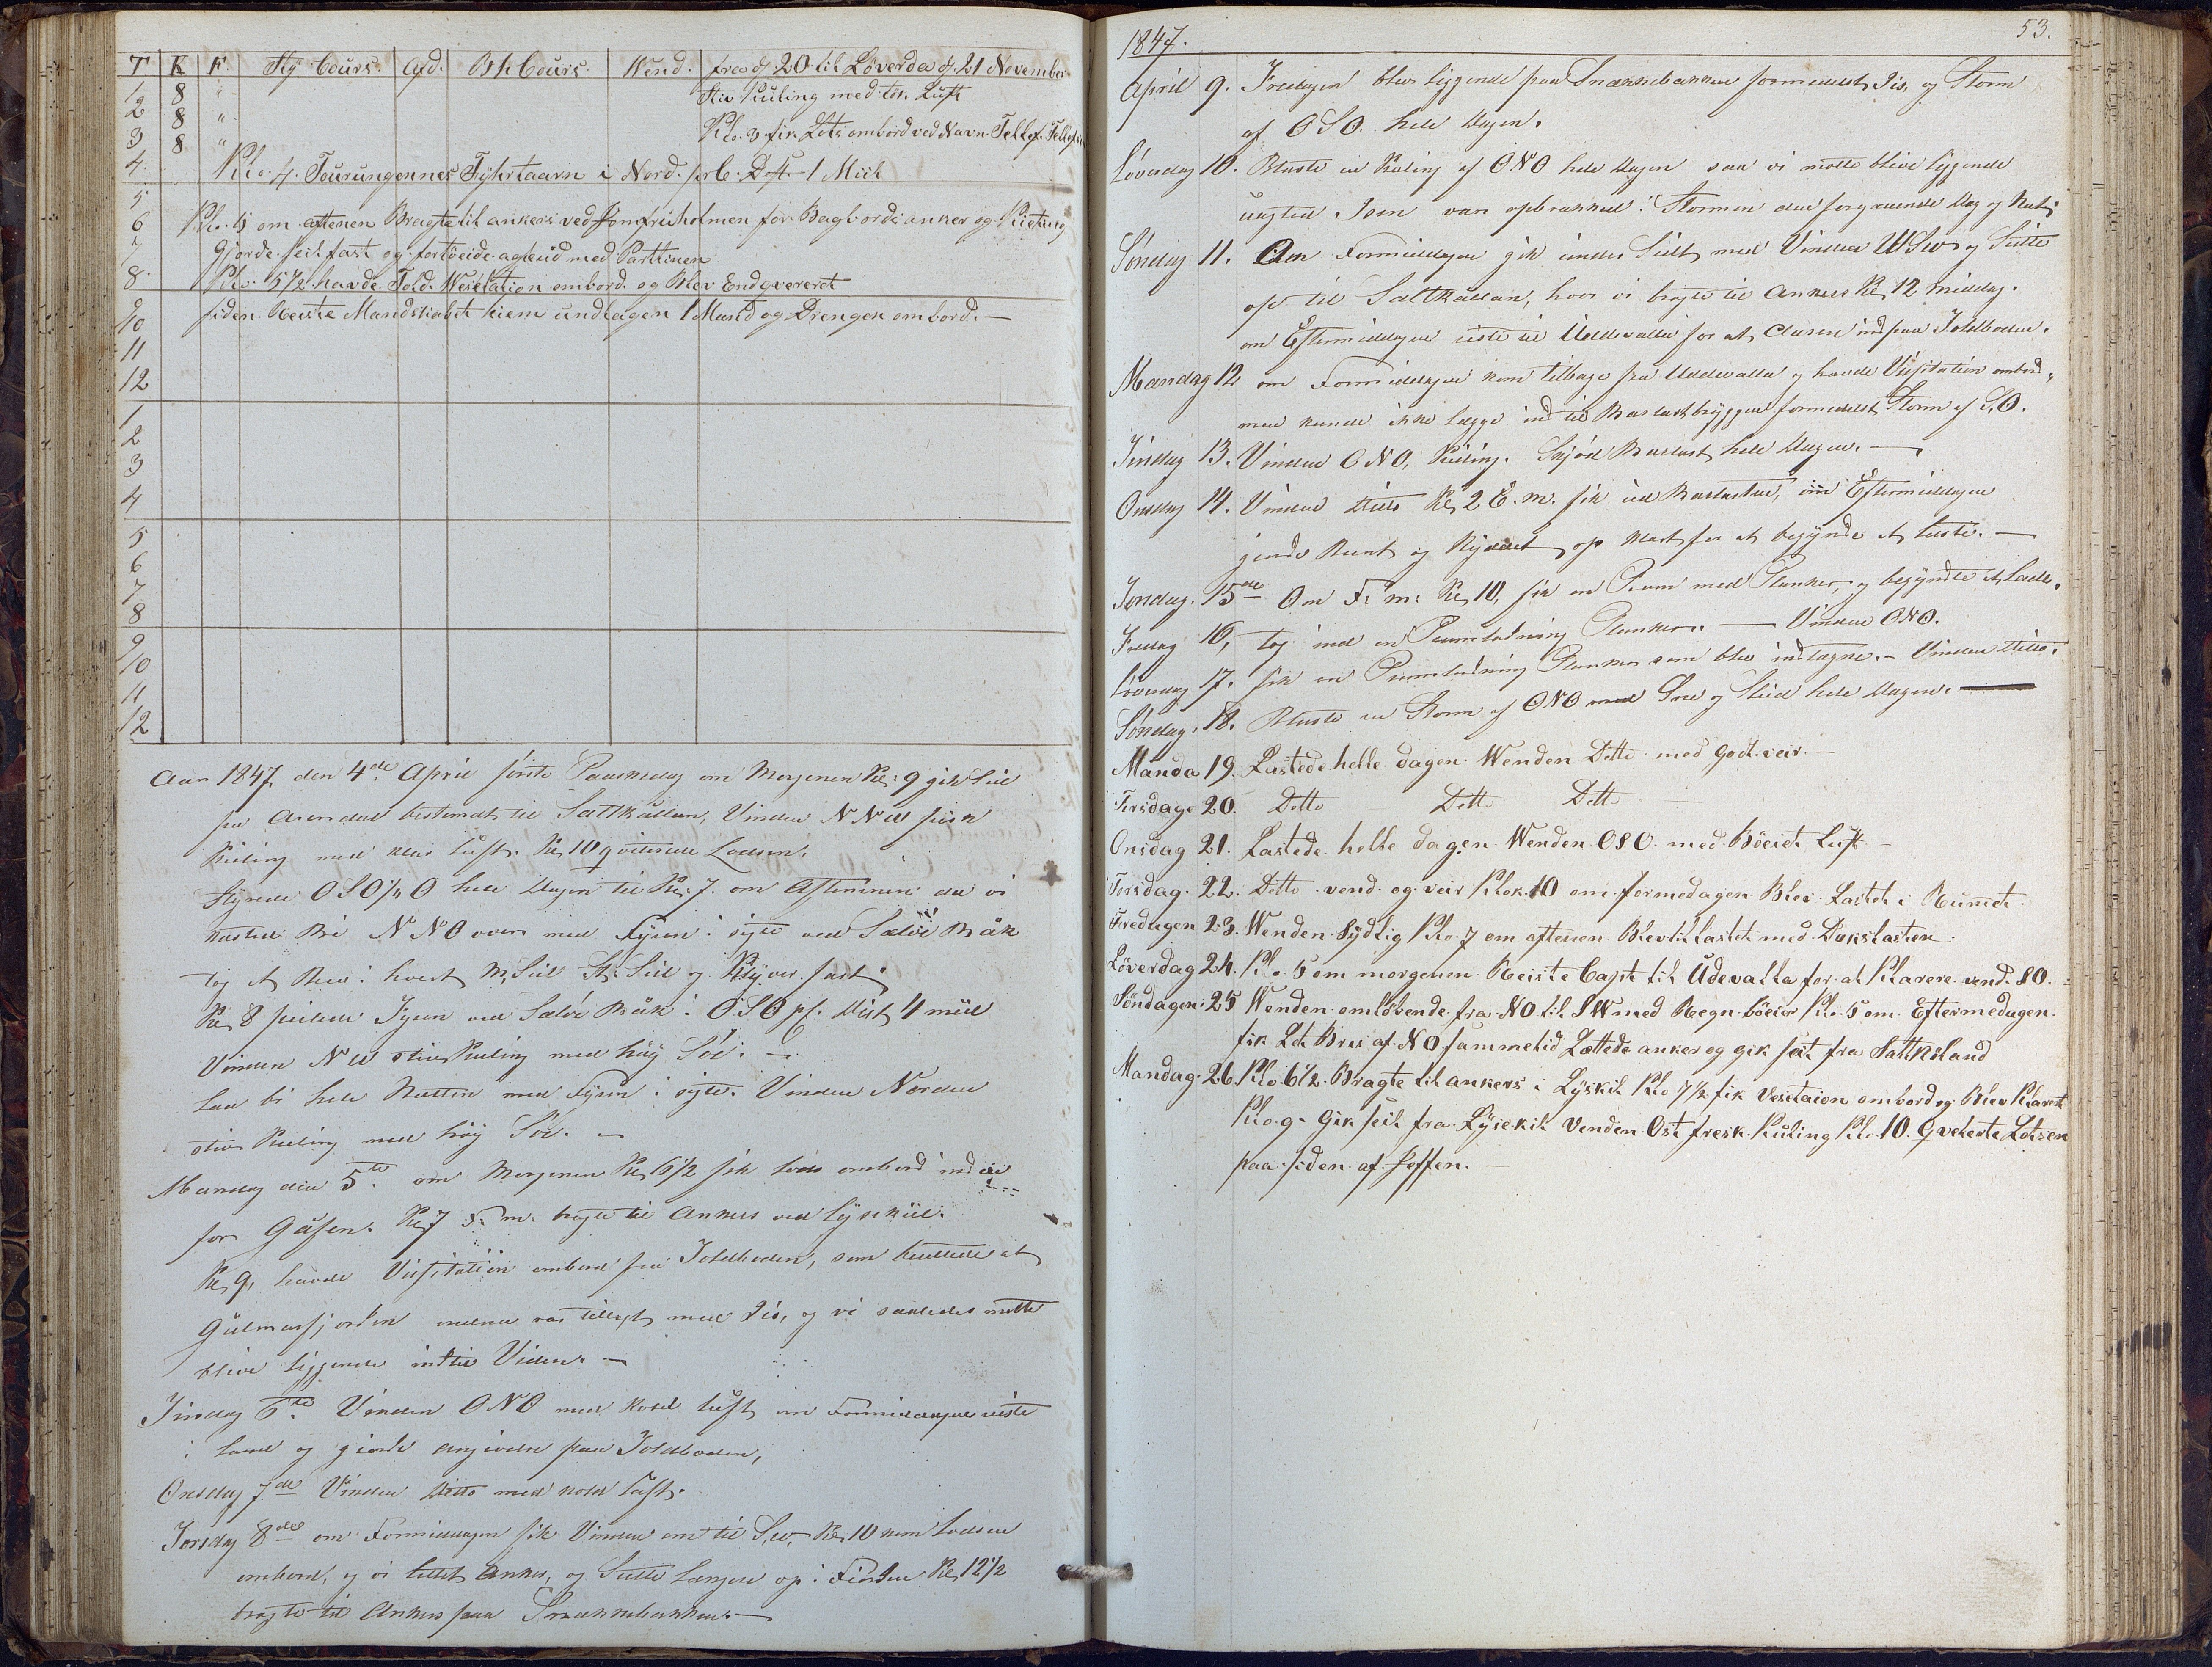 T K F Sty Cours. Afd. Bh Cours Wend. fra d 20 til Löverda d. 21 November
1 8 " Stiv Kuling med tök Luft
2 8 " Klo. 3 fik Lots ombord ved Navn
3 8 "
4 Klo. 4. Tourungennes Fyhrtaarn i Nord. Dist. 1 Miil
5
6 Klo. 5 om aftenen Bragte til ankers ved Jomfruholmen for Bagbords anker og Kietting
7 gjorde seil fast og fortöeide agterud med Parttinen
8 Klo. 5 1/2 havde Told. Wesetation ombord og Blev Endqvereret
9 siden Reiste Mandskabet hiem undtagen 1 Mand og Drengen ombord. —
10
11
12
1
2
3
4
5
6
7
8
9
10
11
12
Aar 1847 den 4de April förste Paaskedag om Morgenen Kl: 9 gik Seil
fra Arendal bestemt til Saltkällan, Vinden NNW frisk
Kuling med klar Luft. Kl 10 qviterede Lodsen.
Styrede OSO 1/2 O hele Dagen til Kl. 7 om Aftenen da vi
kastede Bi NNO over med Fyren i sigte ved Sälö Båk
tog et Reev i hvert M, Seil St. Seil og Klyver fast.
Kl 8 peilede Fyren ved Sälö Båk i OSO pC. Dist 4 miil
Vinden NW stiv Kuling med høy Söe. —
Laa bi hele Natten med Fyren i sigte. Vinden Norden
stiv Kuling med høy Söe. —
Mandag den 5te om Morgenen Kl 6 1/2 fik Lods ombord ind
for Gåsen. Kl 7 F. m. bragte til Ankers ved Lysekiil.
Kl 9, havde Visitation ombord fra Toldboden, som meldede at
Gulmarsfjorden endnu var tillagt med Iis, og vi saaledes motte
blive liggende indtil Viden. —
Tirsdag 6te Vinden ONO med kold Luft om Formiddagen reiste
i Land og gjorde angivelse paa Toldboden,
Onsdag 7de Vinden Ditto med kold Luft.
Torsdag 8de om Formiddagen fik Vinden om til S,W, Kl 10 kom Lodsen
ombord, og vi lettet Anker, og Seilte Længere op i Fiorden Kl 12 1/2
bragte til Ankers paa Snækkebakken. —
1847. 53.
April 9. Fredagen blev liggende paa Snækkebakken formedelst Iis, og Storm
af OSO. hele Dagen.
Löverdag 10. Blæste en Kuling af ONO hele Dagen saa vi motte blive liggende
uagtet Isen var opbrækket i Stormen den foregaaende Dag og Nat.
Söndag 11. Om Formiddagen gik under Seilt med Vinden WSW og Seilte
op til Saltkällan, hvor vi bragte til Ankers Kl, 12 middag.
om Eftermiddagen reiste til Uddevalla for at clarere ind paa Toldboden.
Mandag 12 om Formiddagen kom tilbage fra Uddevalla og havde Visitation ombord,
men kunde ikke lægge ind til Ballastbryggen formedelst Storm af S,O.
Tirsdag 13. Vinden ONO, Kuling. Skjöd Ballast hele Dagen. —
Onsdag 14. Vinden Ditto Kl 2 E. m. fik ud Ballasten, om Eftermiddagen
gjorde Reent og Ryddet op klart for at begynde at laste. —
Torsdag. 15de Om F. m. Kl 10, fik en Pram med Planker, og begyndte at Lade.
Fredag 16, tog ind en Pramladning Planker. — Vinden ONO.
Löverdag 17. fik en Pramladning Planker som blev indtagne. — Vinden Ditto.
Söndag, 18. Blæste en Storm af ONO med Sne og Slud hele Dagen. —
Manda 19. Lastede helle dagen Wenden Ditto med godt veir. —
Tirsdage 20. Ditto Ditto Ditto
Onsdag 21. Lastede helle dagen Wenden OSO. med Böeiet Luft —
Torsdag. 22. Ditto vend og veir Klok. 10 om formedagen Blev Lastet i Rumet.
Fredagen 23. Wenden Sydlig Klo. 7 om aftenen Blev tillastet med Dækslasten
Löverdag 24. Klo. 5 om morgenen Reiste Capt til Udevalla for at Klarere vend. SO.
Söndagen. 25 Wenden omløbende fra NO til SW med Regn böeier Klo. 5 om Eftermedagen.
fik Let Bris af NO sammetid Lættede anker og gik seil fra Saltkeland
Mandag. 26. Klo. 6 1/2. Bragte til ankers i Lyskil Klo 7 1/2 fik Vesetaion ombord og Blev Klaret
Klo. 9. gik seil fra Lysekil Venden Ost fresk Kuling Klo. 10. Qveterte Lotsen
paa siden af